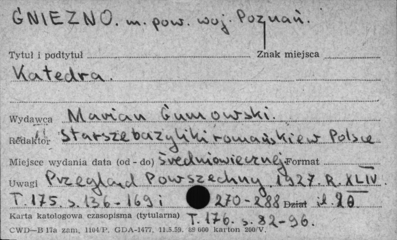 GNIEZNO. m. pow. woj. Poznań.
Tytuł i podtytuł Znak miejsca
Katedra.
Wydawca Marian Gumowski.
Redaktor Starsze bazyliki romańskie w Polsce
Miejsce wydania data (od - do) średniowiecznej Format
Uwagi Przegląd Powszechny 1927. R. XLIV.
T. 175. s. 136-169 i 270-288 Dział il. 20
Karta katalogowa czasopisma (tytularna) T. 176. s. 82-96.
CWD—B 17a zam. 1104/P. GDA-1477, 11.5.59. karton 200/V.